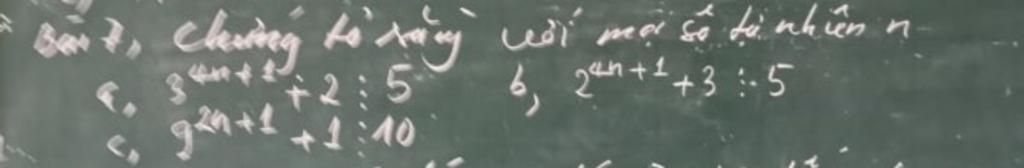 Bài 7, Chứng tỏ rằng với mọi số tự nhiên n
a, 3^{4n+1} + 2 ⋮ 5 b, 2^{4n+1} + 3 ⋮ 5
c, 9^{2n+1} + 1 ⋮ 10